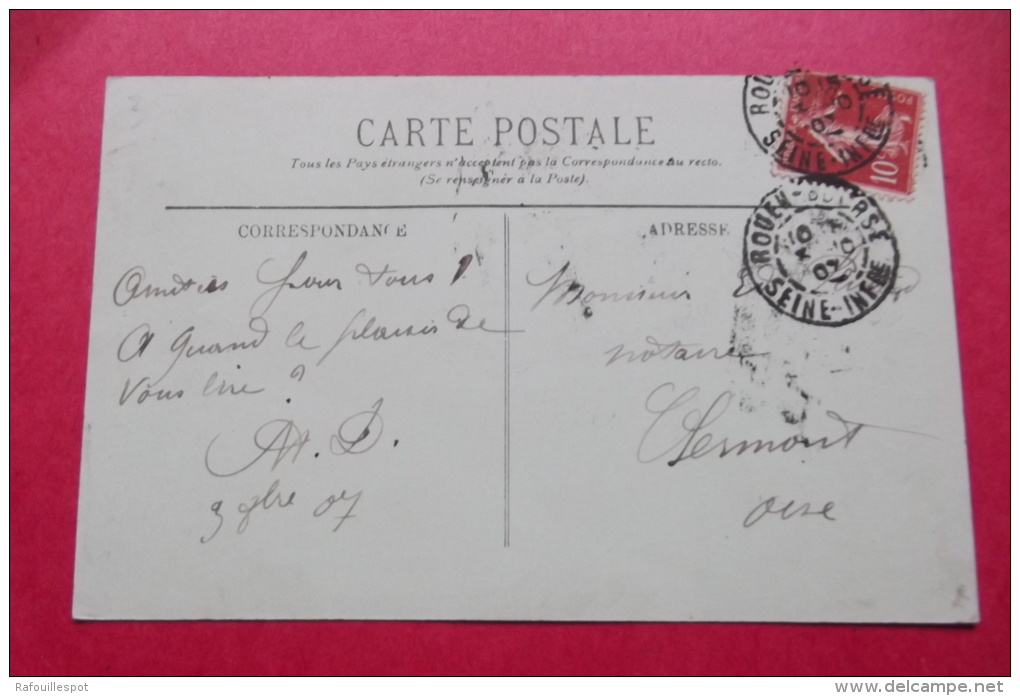 CARTE POSTALE
Tous les Pays étrangers n'acceptent pas la Correspondance au recto.
(Se renseigner à la Poste).
CORRESPONDANCE
Amitiés pour tous !
A quand le plaisir de
vous lire ?
A. D.
3 9bre 07
ADRESSE
Monsieur
notaire
Clermont
oise
10
ROUEN-BOURSE
SEINE-INFRE
ROUEN-BOURSE
SEINE-INFRE
Rafouillespot
www.delcampe.net